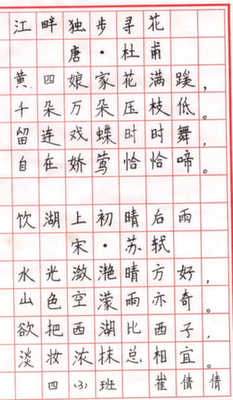 江畔独步寻花
唐·杜甫
黄四娘家花满蹊，
千朵万朵压枝低。
留连戏蝶时时舞，
自在娇莺恰恰啼。
饮湖上初晴后雨
宋·苏轼
水光潋滟晴方好，
山色空濛雨亦奇。
欲把西湖比西子，
淡妆浓抹总相宜。
四（3）班 崔倩倩